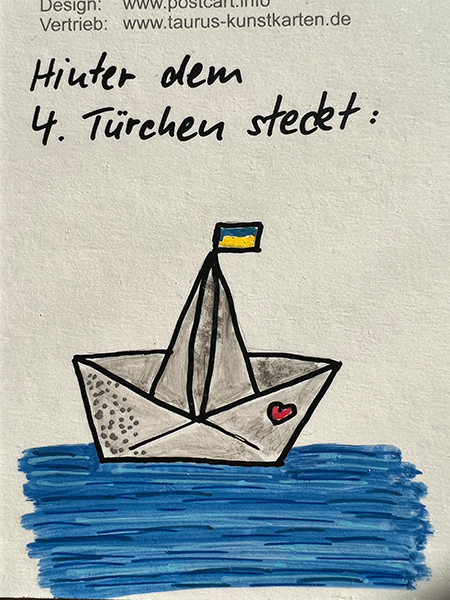 Design: www.postcart.info
Vertrieb: www.taurus-kunstkarten.de
Hinter dem
4. Türchen steckt: